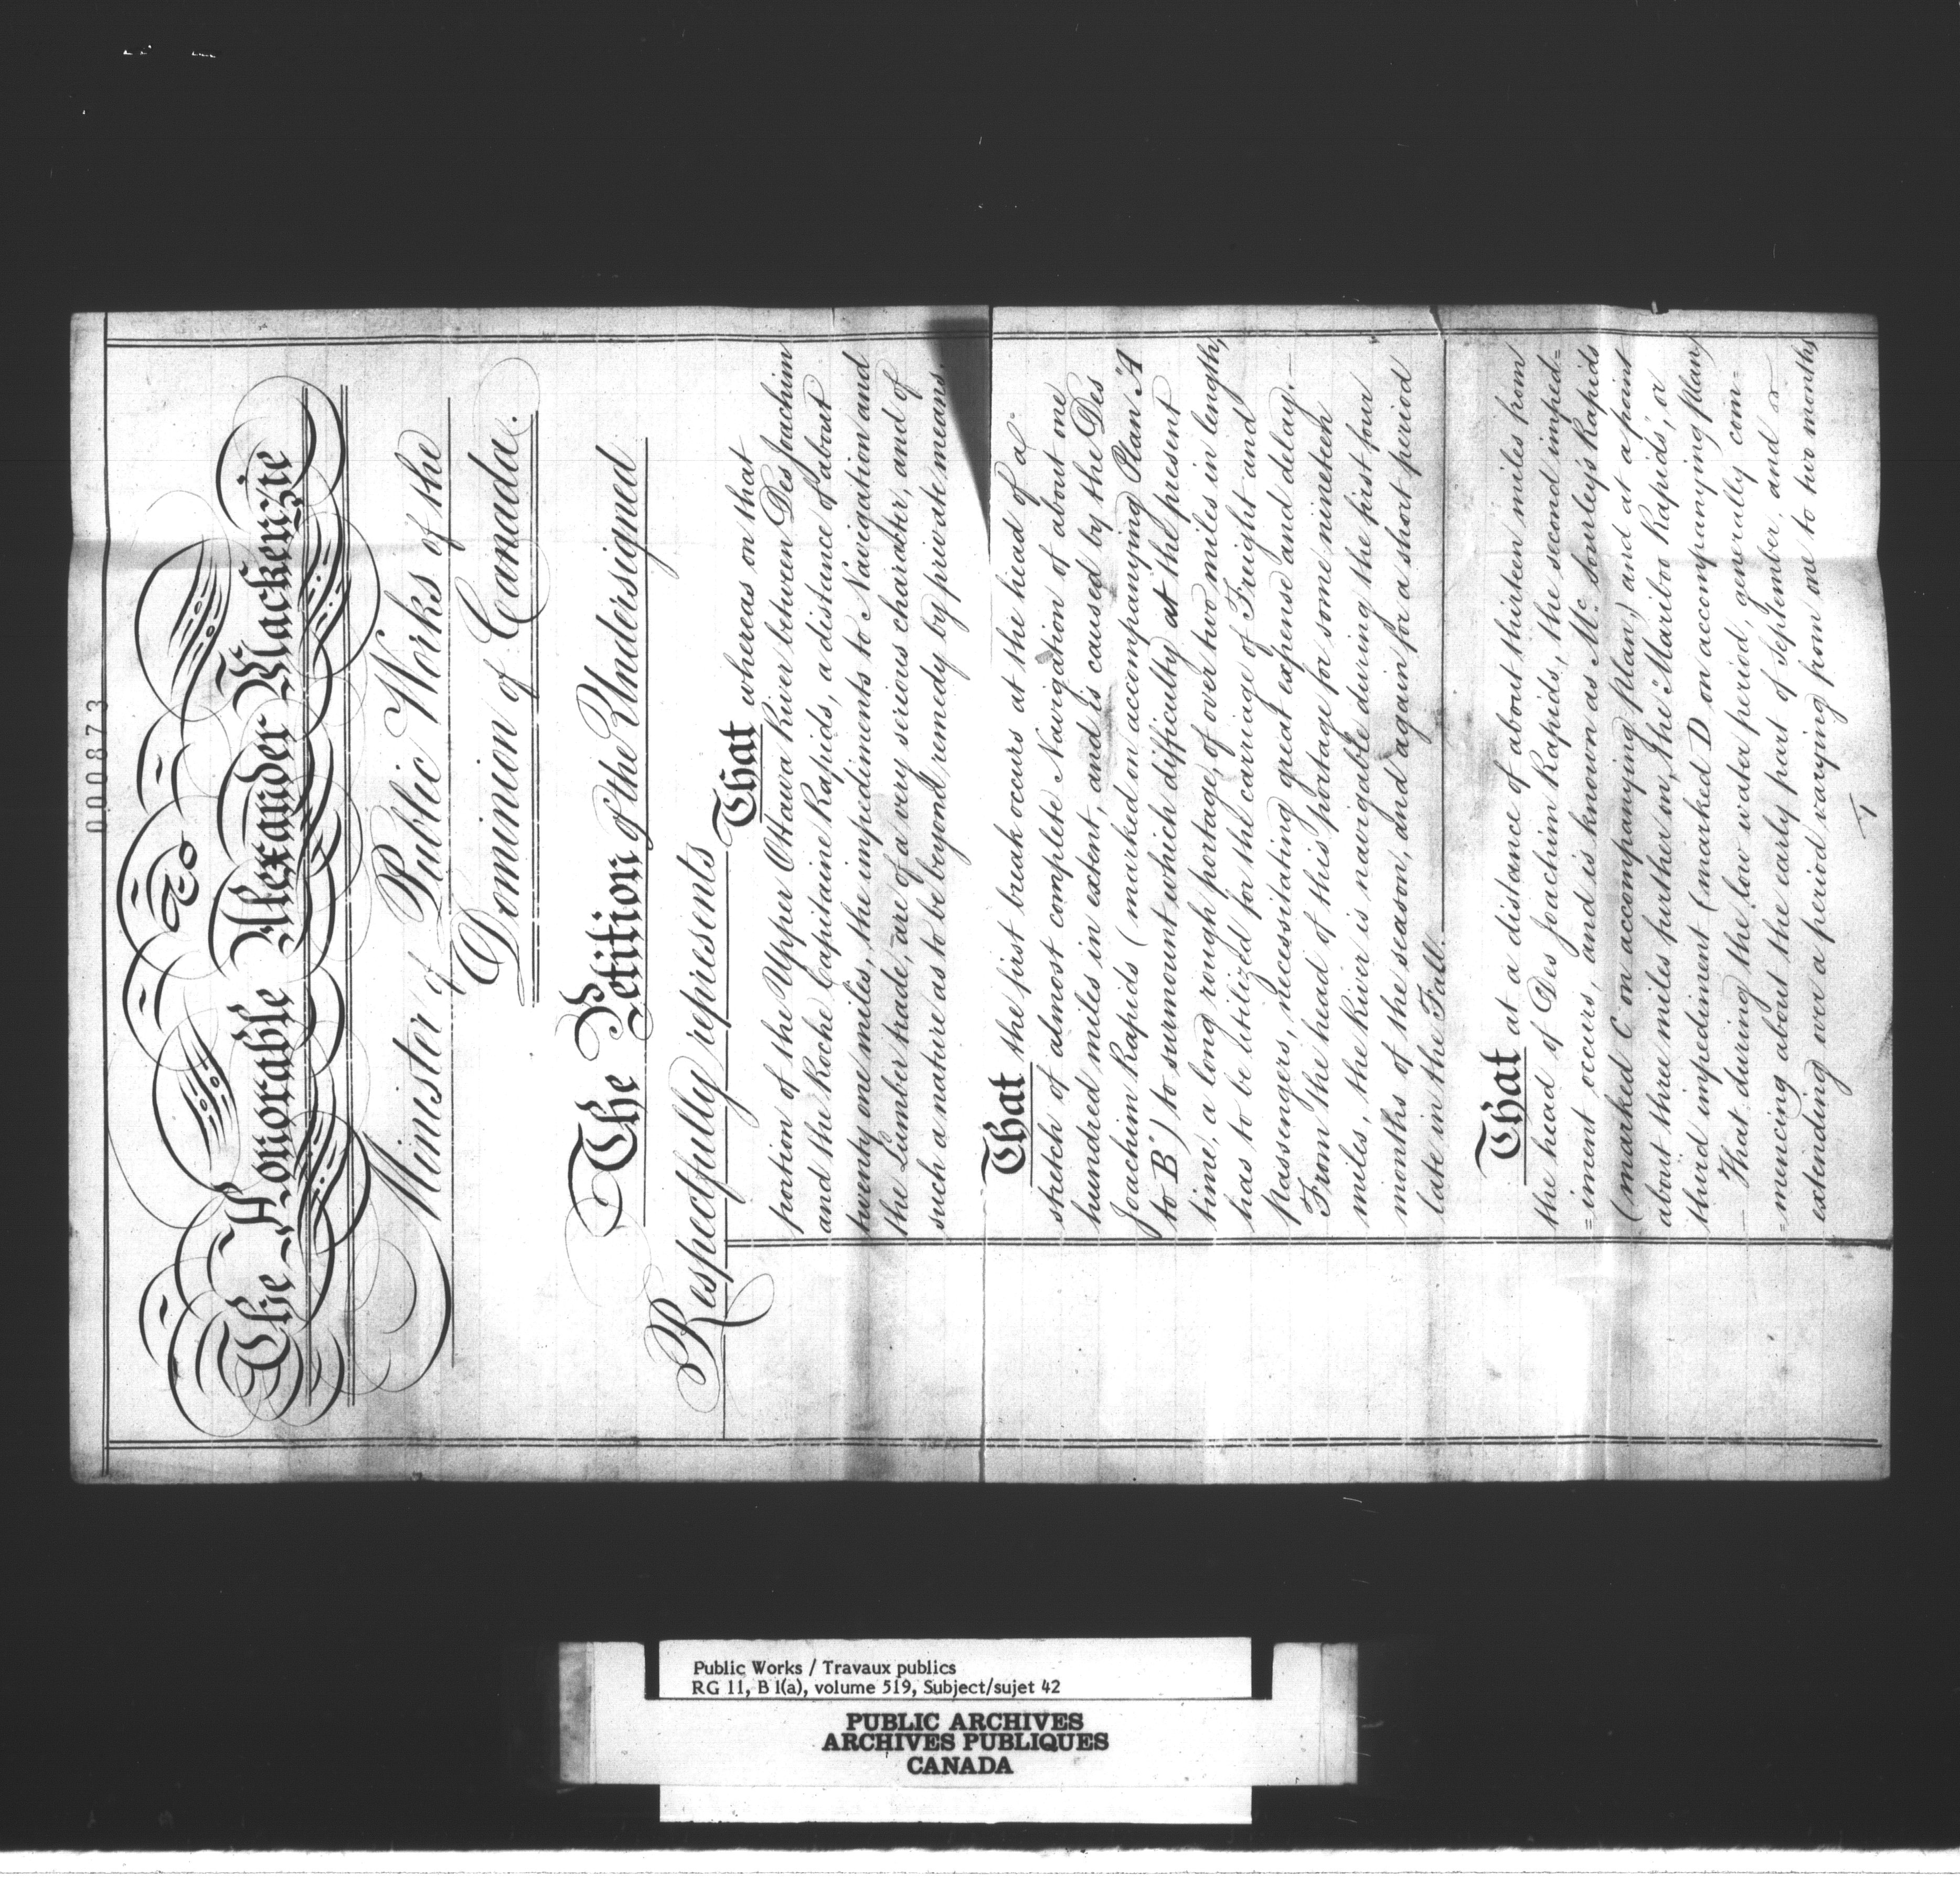 000873
To
The Honorable Alexander Mackenzie
Minister of Public Works of the
Dominion of Canada.
The Petition of the Undersigned
Respectfully represents
That whereas on that
portion of the Upper Ottawa River between Des Joachim
and the Roche Capitaine Rapids, a distance of about
twenty one miles, the impediments to Navigation and
the Lumber trade, are of a very serious character, and of
such a nature as to be beyond remedy by private means.
That the first break occurs at the head of a
stretch of almost complete Navigation of about one
hundred miles in extent, and is caused by the Des
Joachim Rapids (marked on accompanying Plan "A
to B") to surmount which difficulty at the present
time, a long rough portage, of over two miles in length,
has to be utilized for the carriage of Freight and
passengers, necessitating great expense and delay.—
From the head of this portage for some nineteen
miles, the River is navigable during the first four
months of the season, and again for a short period
late in the Fall.
That at a distance of about thirteen miles from
the head of Des Joachim Rapids, the second imped=
=iment occurs, and is known as Mc Sourley's Rapids
(marked C on accompanying plan) and at a point
about three miles further in, the "Mariboo Rapids", or
third impediment (marked D on accompanying plan)
— That during the low water period, generally com=
=mencing about the early part of September, and
extending over a period varying from one to two months
Public Works / Travaux publics
RG 11, B 1(a), volume 519, Subject/sujet 42
PUBLIC ARCHIVES
ARCHIVES PUBLIQUES
CANADA